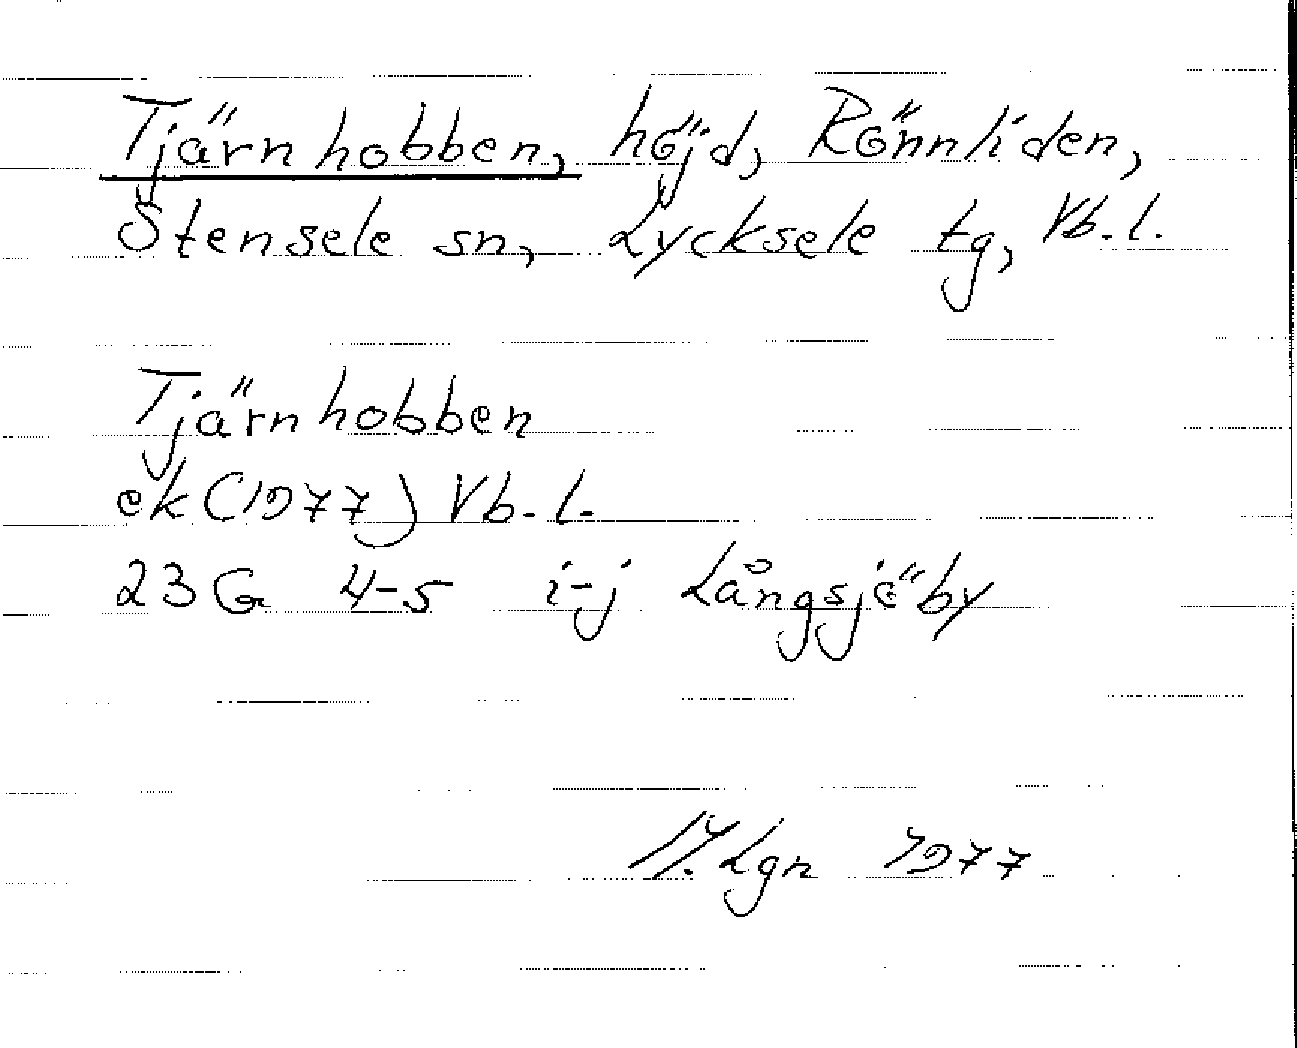 Tjärnhobben, höjd, Rönnliden,
Stensele sn, Lycksele tg, Vb.l.
Tjärnhobben
ek (1977) Vb.l.
23 G 4-5 i-j Långsjöby
Lgn 1977